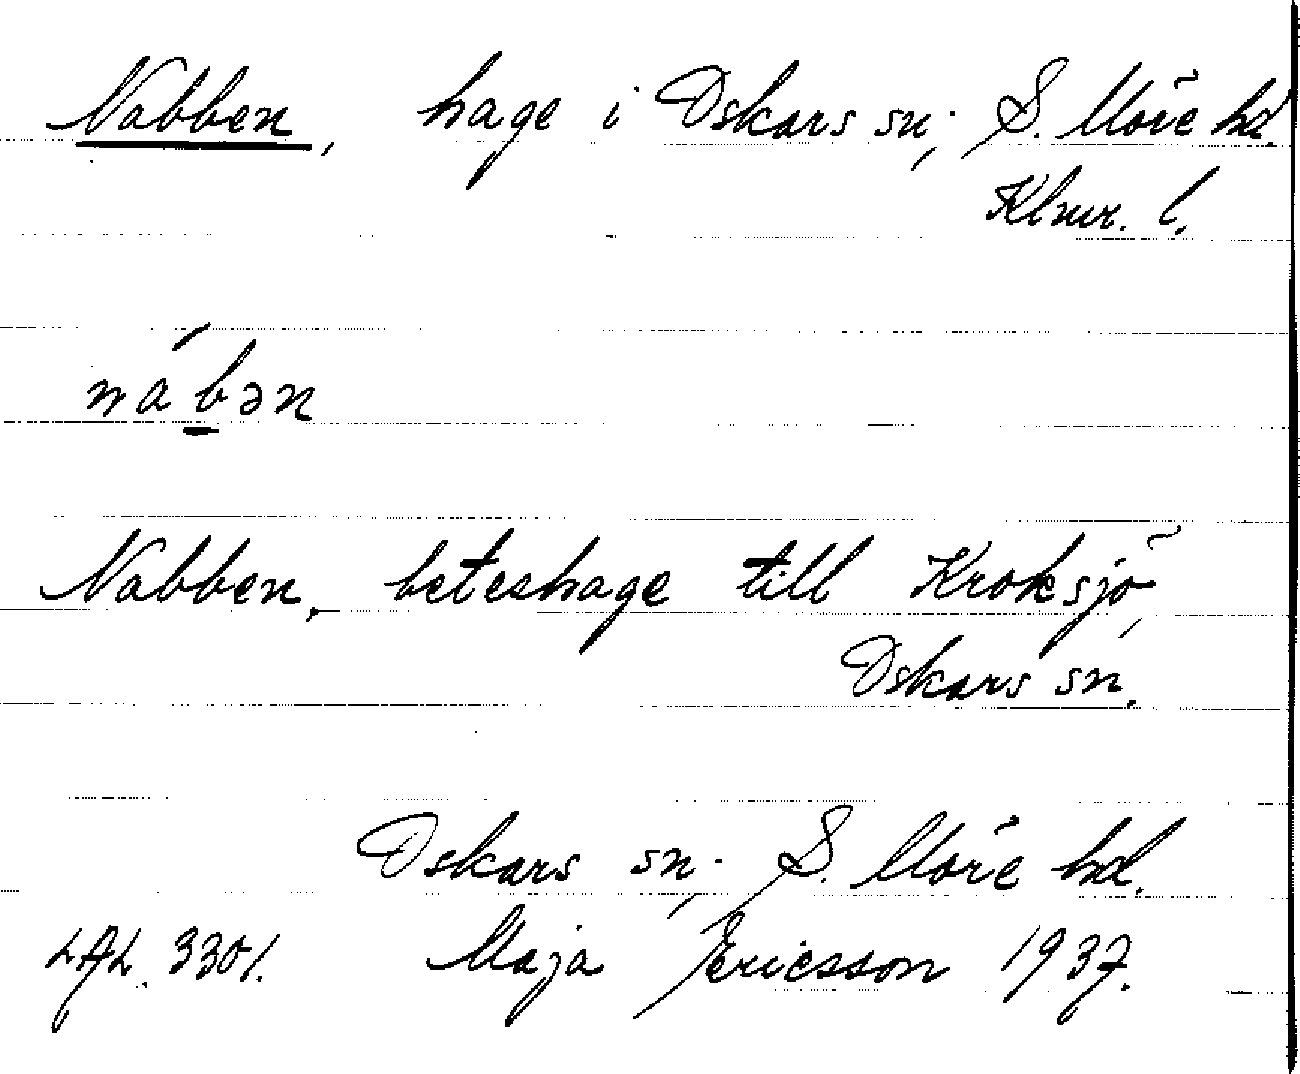 Nabben, hage i Oskars sn; S. Möre hd.
Klmr. l.
nábən
Nabben, beteshage till Kroksjö,
Oskars sn.
Oskars sn; S. Möre hd.
LAL. 3301. Maja Ericsson 1937.